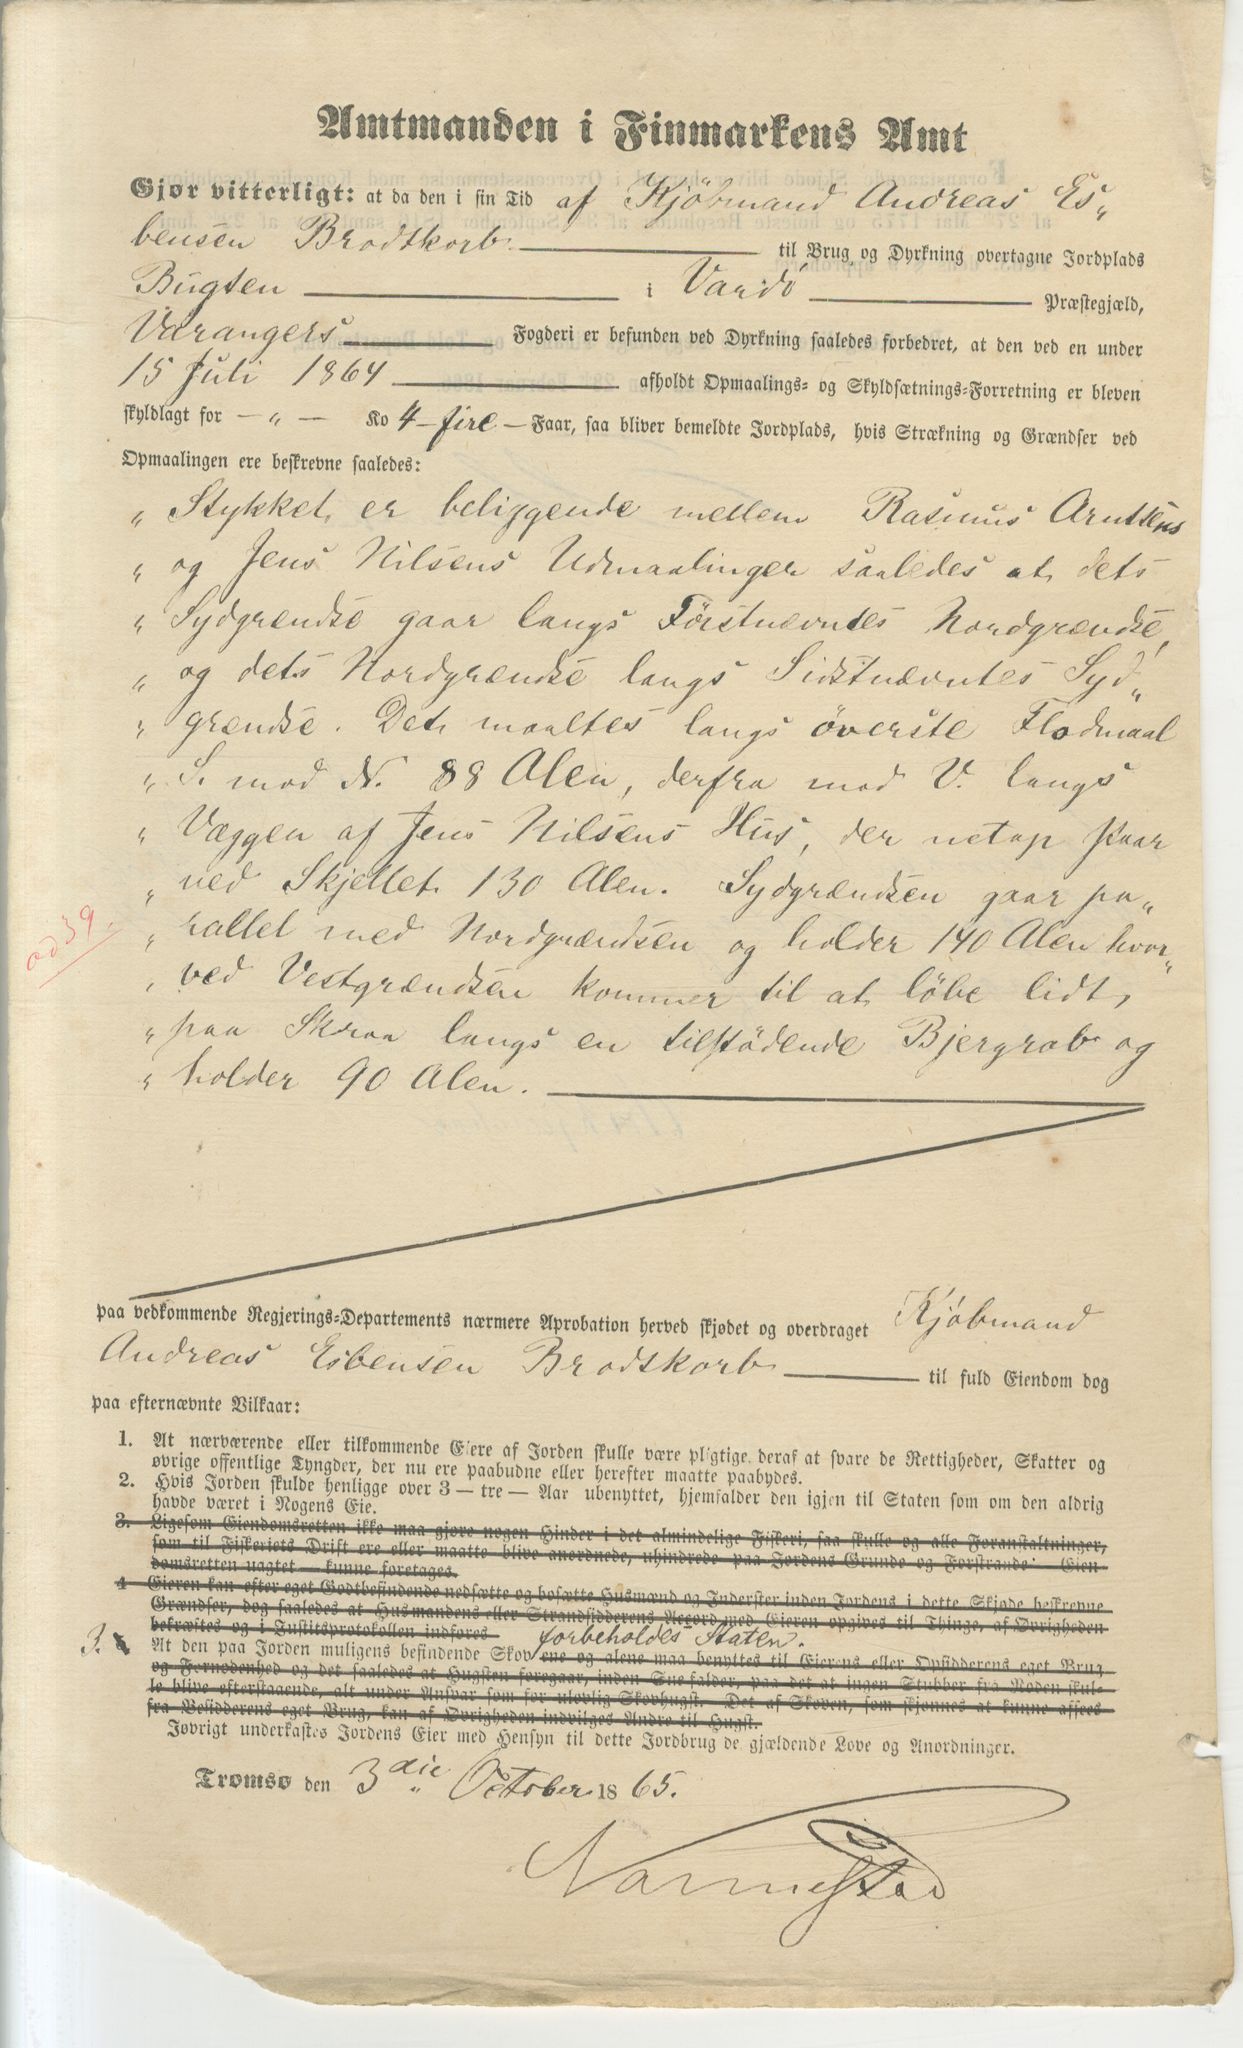 Amtmanden i Finmarkens Amt
Gjør vitterligt: at da den i sin Tid af Kjöbmand Andreas Es„
bensen Brodtkorb til Brug og Dyrkning overtagne Jordplads
Bugten i Vardö Præstegjæld,
Varangers Fogderi er befunden ved Dyrkning saaledes forbedret, at den ved en under
15 Juli 1864 afholdt Opmaalings- og Skyldsætnings-Forretning er bleven
skyldlagt for — „ — Ko 4 – fire – Faar, saa bliver bemeldte Jordplads, hvis Strækning og Grændser ved
Opmaalingen ere beskrevne saaledes:
„ Stykket er beliggende mellem Rasmus Arntsens
„ og Jens Nilsens Udmaalinger saaledes at dets
„ Sydgrændse gaar langs Førstnævntes Nordgrændse,
„ og dets Nordgrændse langs Sidstnævntes Syd„
„ grændse. Det maaltes langs överste Flodmaal
„ S. mod N. 88 Alen, derfra mod V. langs
„ Væggen af Jens Nilsens Hus, der netop staar
„ ved Skjellet 130 Alen. Sydgrændsen gaar pa„
„ rallel med Nordgrændsen og holder 140 Alen hvor„
„ ved Vestgrændsen kommer til at löbe lidt
„ paa Skraa langs en tilstödende Bjergrab og
„ holder 90 Alen.
od 39.
paa vedkommende Regjerings-Departements nærmere Aprobation herved skjødet og overdraget Kjöbmand
Andreas Esbensen Brodtkorb til fuld Eiendom dog
paa efternævnte Vilkaar:
1. At nærværende eller tilkommende Eiere af Jorden skulle være pligtige deraf at svare de Rettigheder, Skatter og
øvrige offentlige Tyngder, der nu ere paabudne eller herefter maatte paabydes.
2. Hvis Jorden skulde henligge over 3 — tre — Aar ubenyttet, hjemfalder den igjen til Staten som om den aldrig
havde været i Nogens Eie.
3. Ligesom Eiendomsretten ikke maa gjøre nogen Hinder i det almindelige Fiskeri, saa skulle og alle Foranstaltninger,
som til Fiskeriets Drift ere eller maatte blive anordnede, uhindrede paa Jordens Grunde og Forstrande Eien
domsretten uagtet — kunne foretages.
4 Eieren kan efter eget Godtbefindende nedsætte og bosætte Husmænd og Inderster inden Jordens i dette Skjøde beskrevne
Grændser, dog saaledes at Husmandens eller Strandsidderens Accord med Eieren opgives til Thinge, af Øvrigheden
bekræftes og i Justitsprotokollen indføres forbeholdes Staten.
3. At den paa Jorden muligens befindende Skov ene og alene maa benyttes til Eierens eller Opsidderens eget Brug
og Fornødenhed og det saaledes at Hugsten foregaar, inden Sne falder, paa det at ingen Stubber fra Roden skul-
le blive efterstaaende, alt under Ansvar som for ulovlig Skovhugst. Det af Skoven, som skjønnes at kunne afsees
fra Besidderens eget Brug, kan af Øvrigheden indvilges Andre til Hugst.
Jøvrigt underkastes Jordens Eier med Hensyn til dette Jordbrug de gjældende Love og Anordninger.
Tromsø den 3die October 1865.